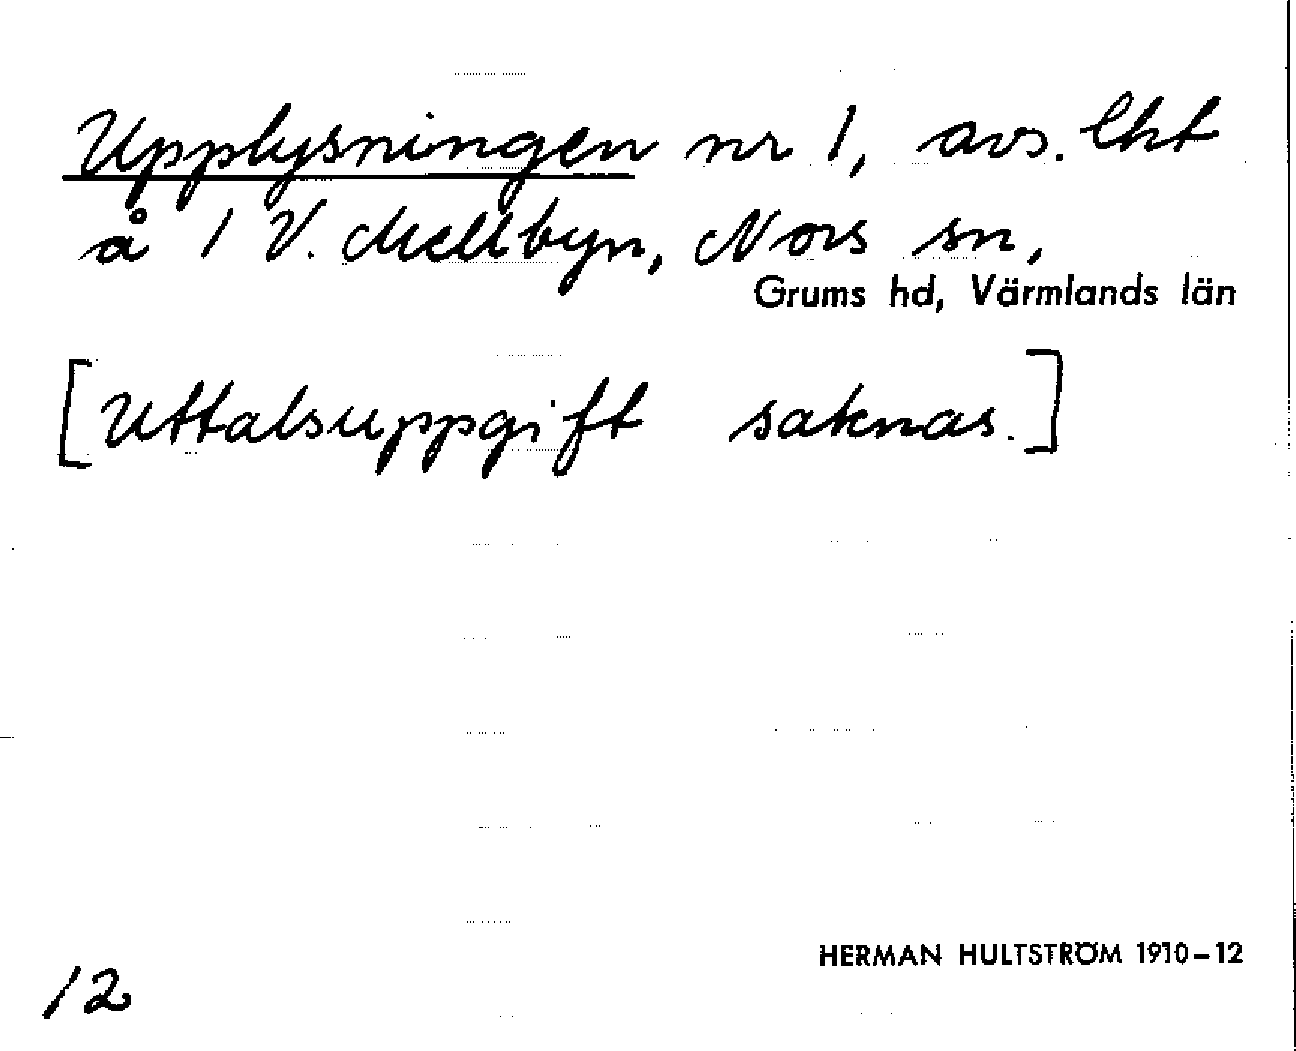 Upplysningen nr 1, avs. lht
å 1 V. Mellbyn, Nors sn,
Grums hd, Värmlands län
[Uttalsuppgift saknas.]
HERMAN HULTSTRÖM 1910–12
12